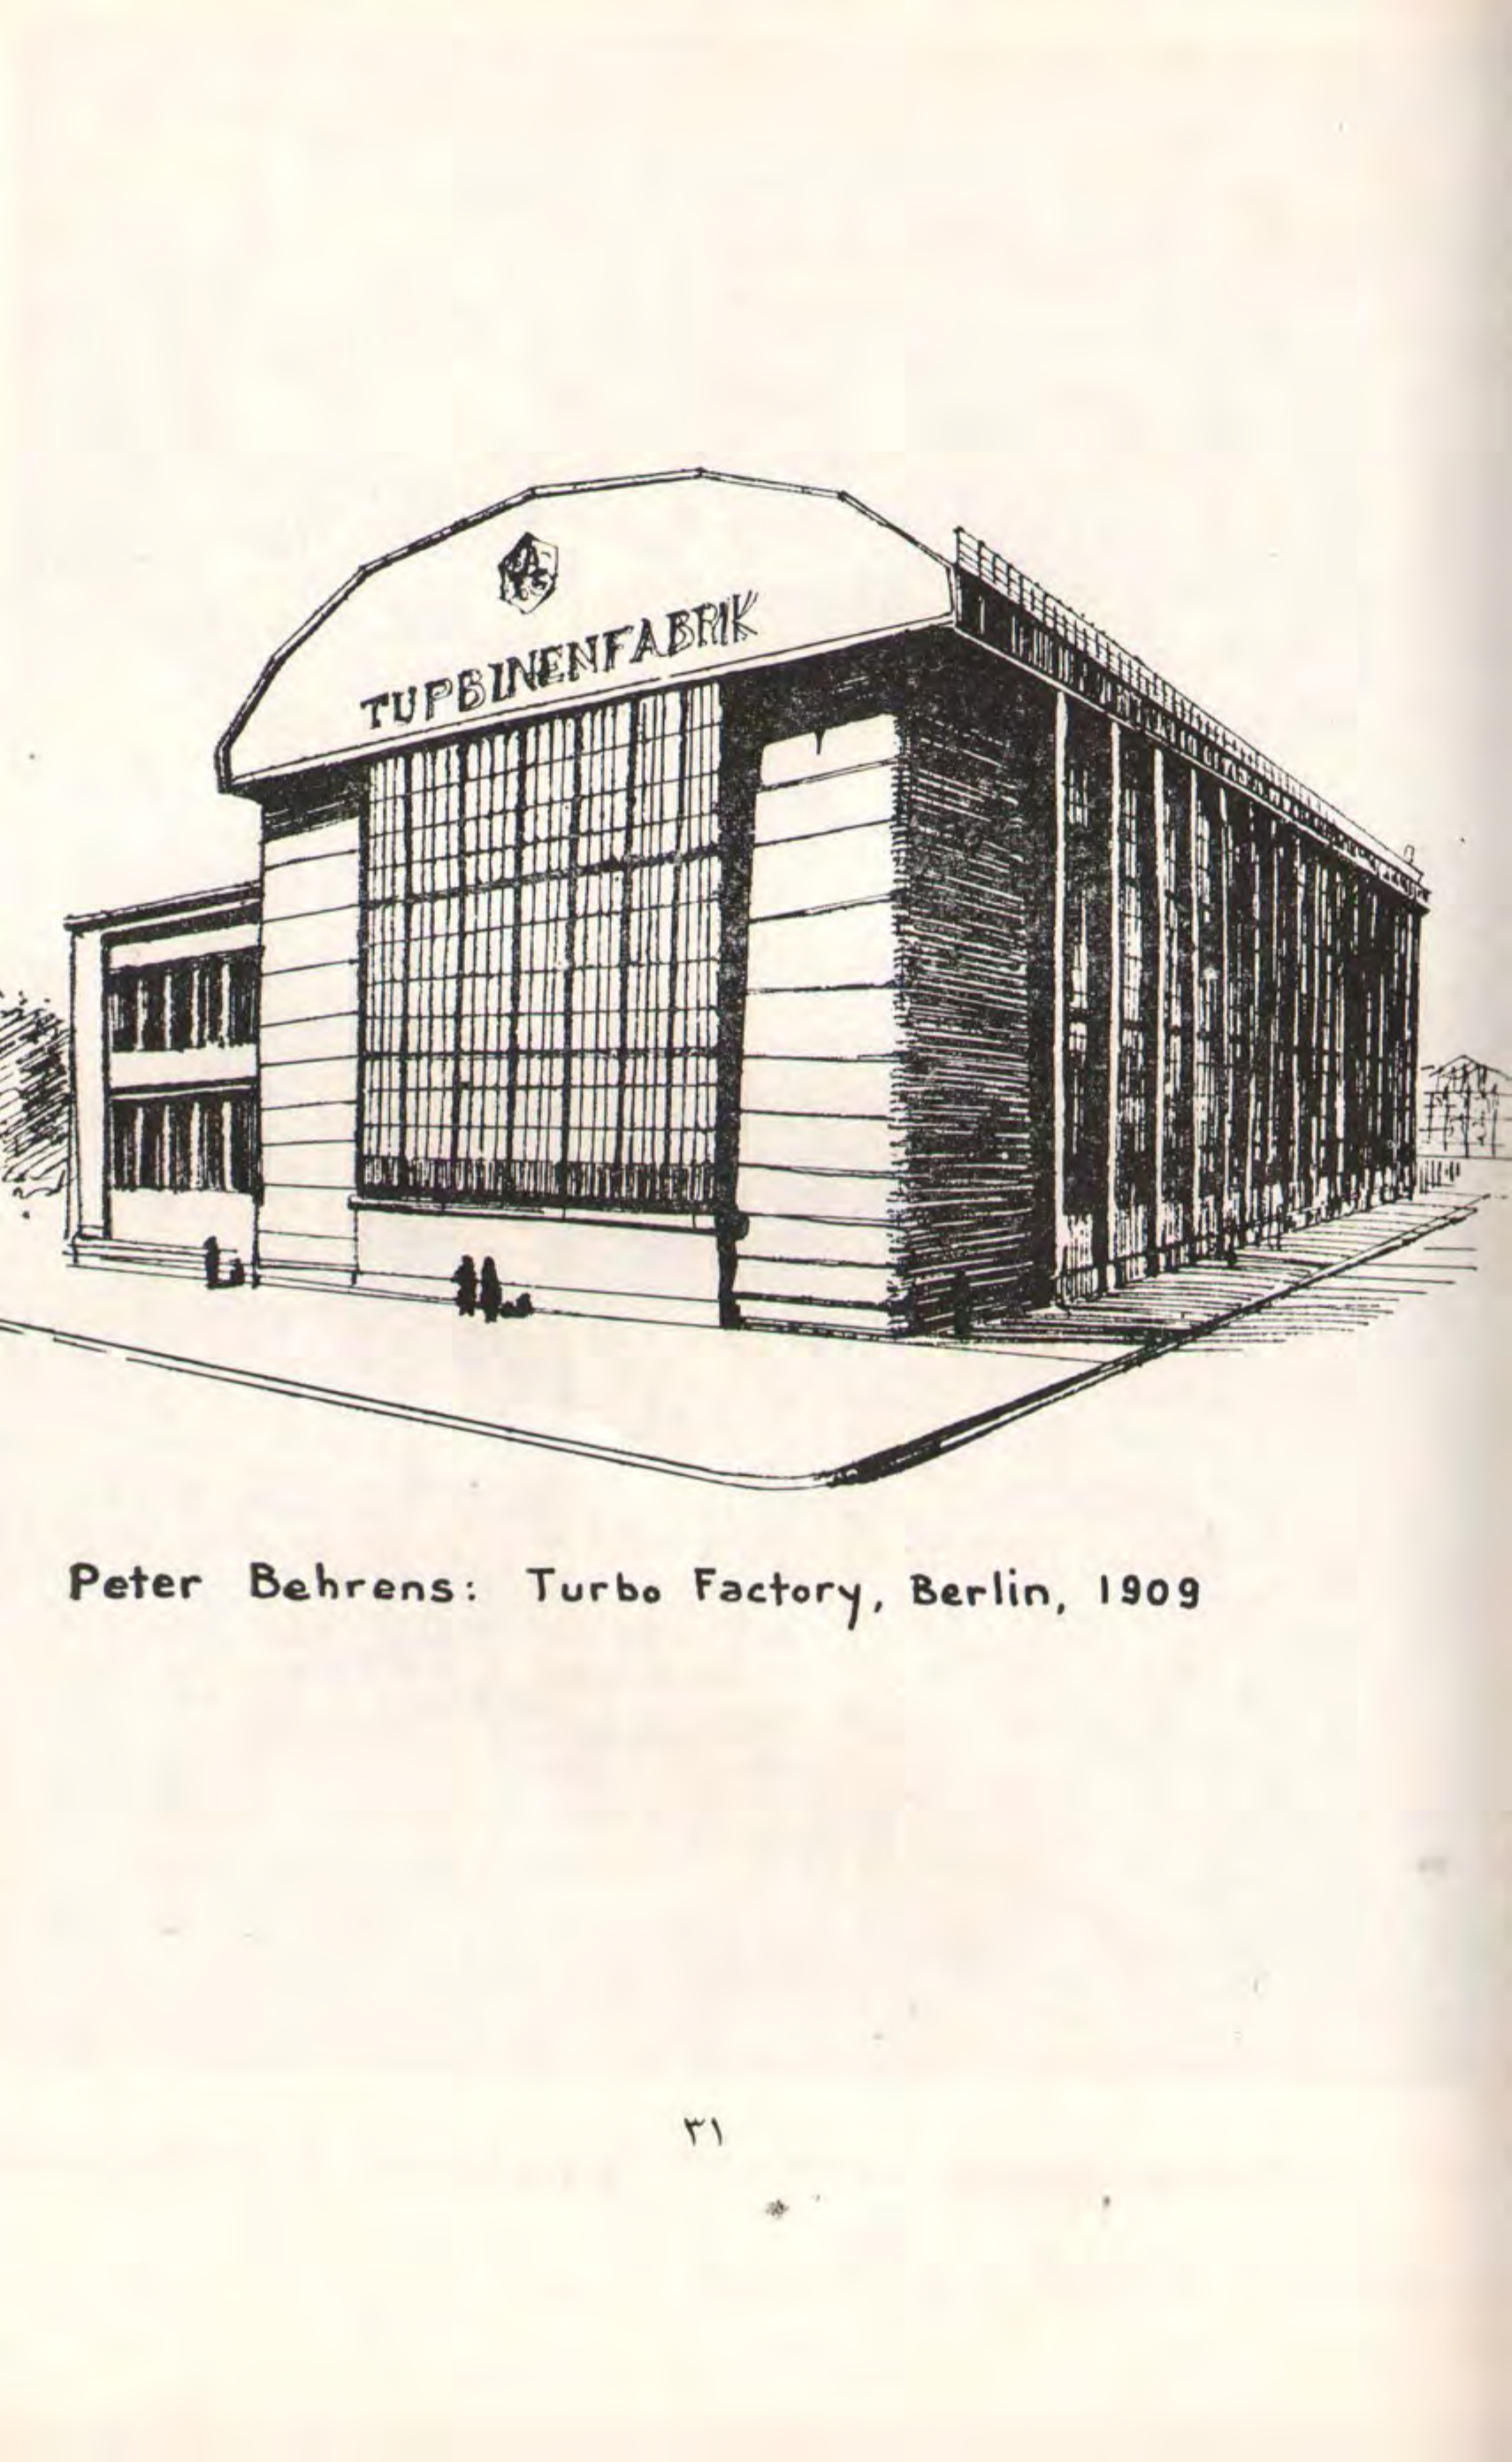 TUPBINENFABRIK
Peter Behrens: Turbo Factory, Berlin, 1909
۳۱